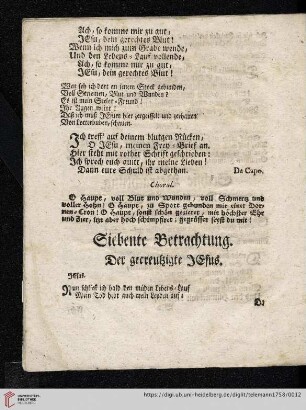 Ach, so komme mir zu gut,
JEsu, dein gerechtes Blut!
Wenn ich mich zum Grabe wende,
Und den Lebens-Lauf vollende,
Ach, so komme mir zu gut,
JEsu, dein gerechtes Blut!
Wen seh ich dort an jenem Stock gebunden,
Voll Striemen, Blut und Wunden?
Es ist mein Seelen-Freund!
Ihr Augen weint!
Ihr müßt JEsum hier zergeisselt und
Von Lotterbuben, schauen.
Ich treff' auf deinem blutgen Rücken,
O JEsu, meinen Frey-Brief an.
Hier steht mit rother Schrift geschrieben:
Ich sprech euch quitt, ihr meine Lieben!
Dann eure Schuld ist abgethan. Da Capo.
Choral.
O Haupt, voll Blut und Wunden, voll Schmertz und
voller Hohn! O Haupt, zu Spott gebunden mit einer Dor-
nen-Cron! O Haupt, sonst schön gezieret, mit höchster Ehr
und Zier, itzt aber hoch schimpfiret; gegrüsset seyst du mir!
Siebente Betrachtung.
Der gecreutzigte JEsus.
JEsus.
Nun schließ ich bald den müden Lebens-Lauf
Mein Tod hebt auch mein Leyden auf:
https://digi.ub.uni-heidelberg.de/diglit/telemann1758/0012